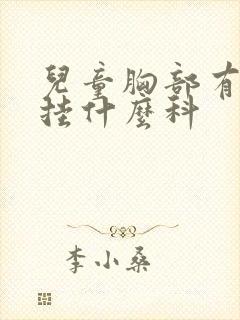 兒童胸部有
挂什麼科
李小桑